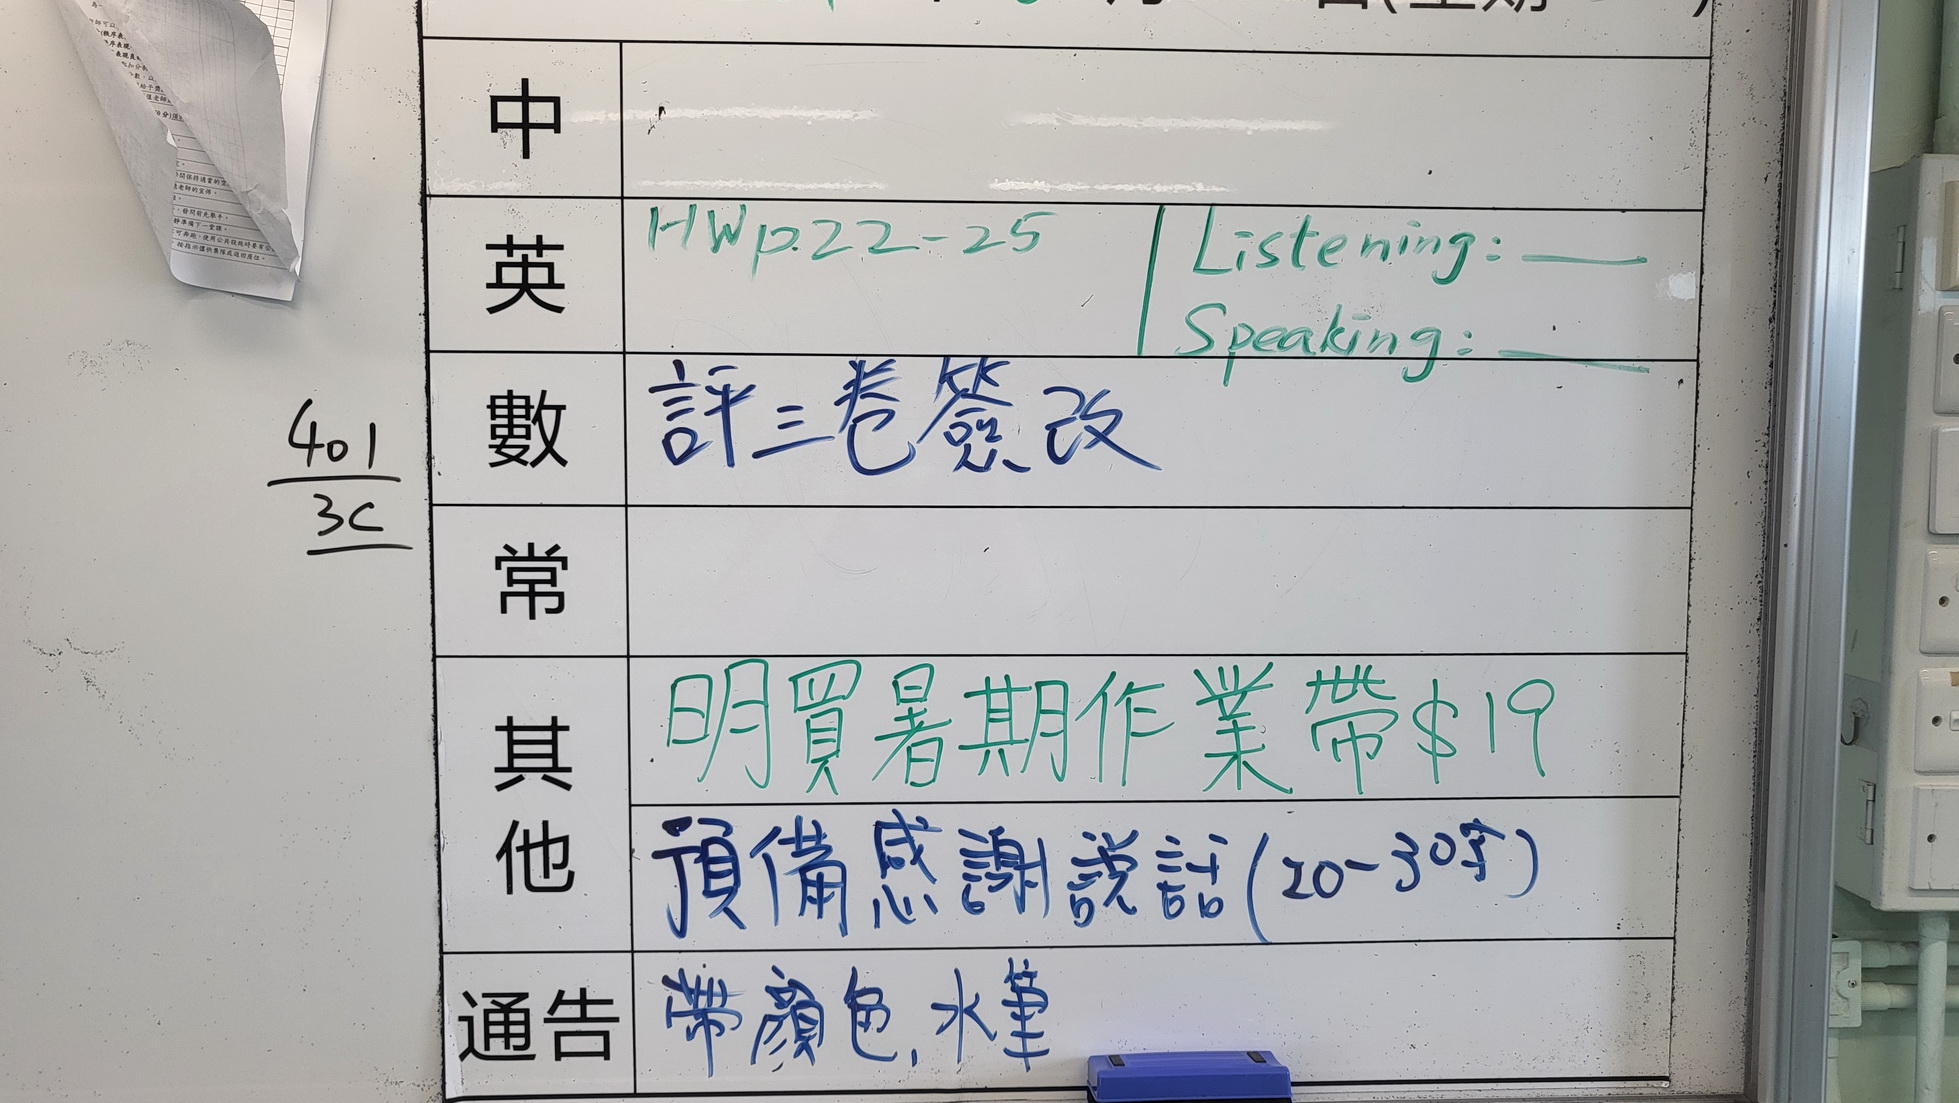 中
英 HWp.22-25 | Listening: ___
Speaking: ___
數 評三卷簽改
401
3C
常
其他 明買暑期作業帶$19
預備感謝說話(20-30字)
通告 帶顏色,水筆